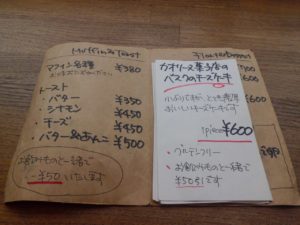 Muffin & Toast
マフィン各種 ¥380
トースト
・バター ¥350
・シナモン ¥450
・チーズ ¥450
・バター&あんこ ¥500
お飲みものと一緒で
¥50 いたします
カオリーヌ菓子店の
バスクのチーズケーキ
小ぶりですが、とても濃厚
おいしいチーズケーキです
1piece ¥600
・グルテンフリー
・お飲みものと一緒で
¥50引きです